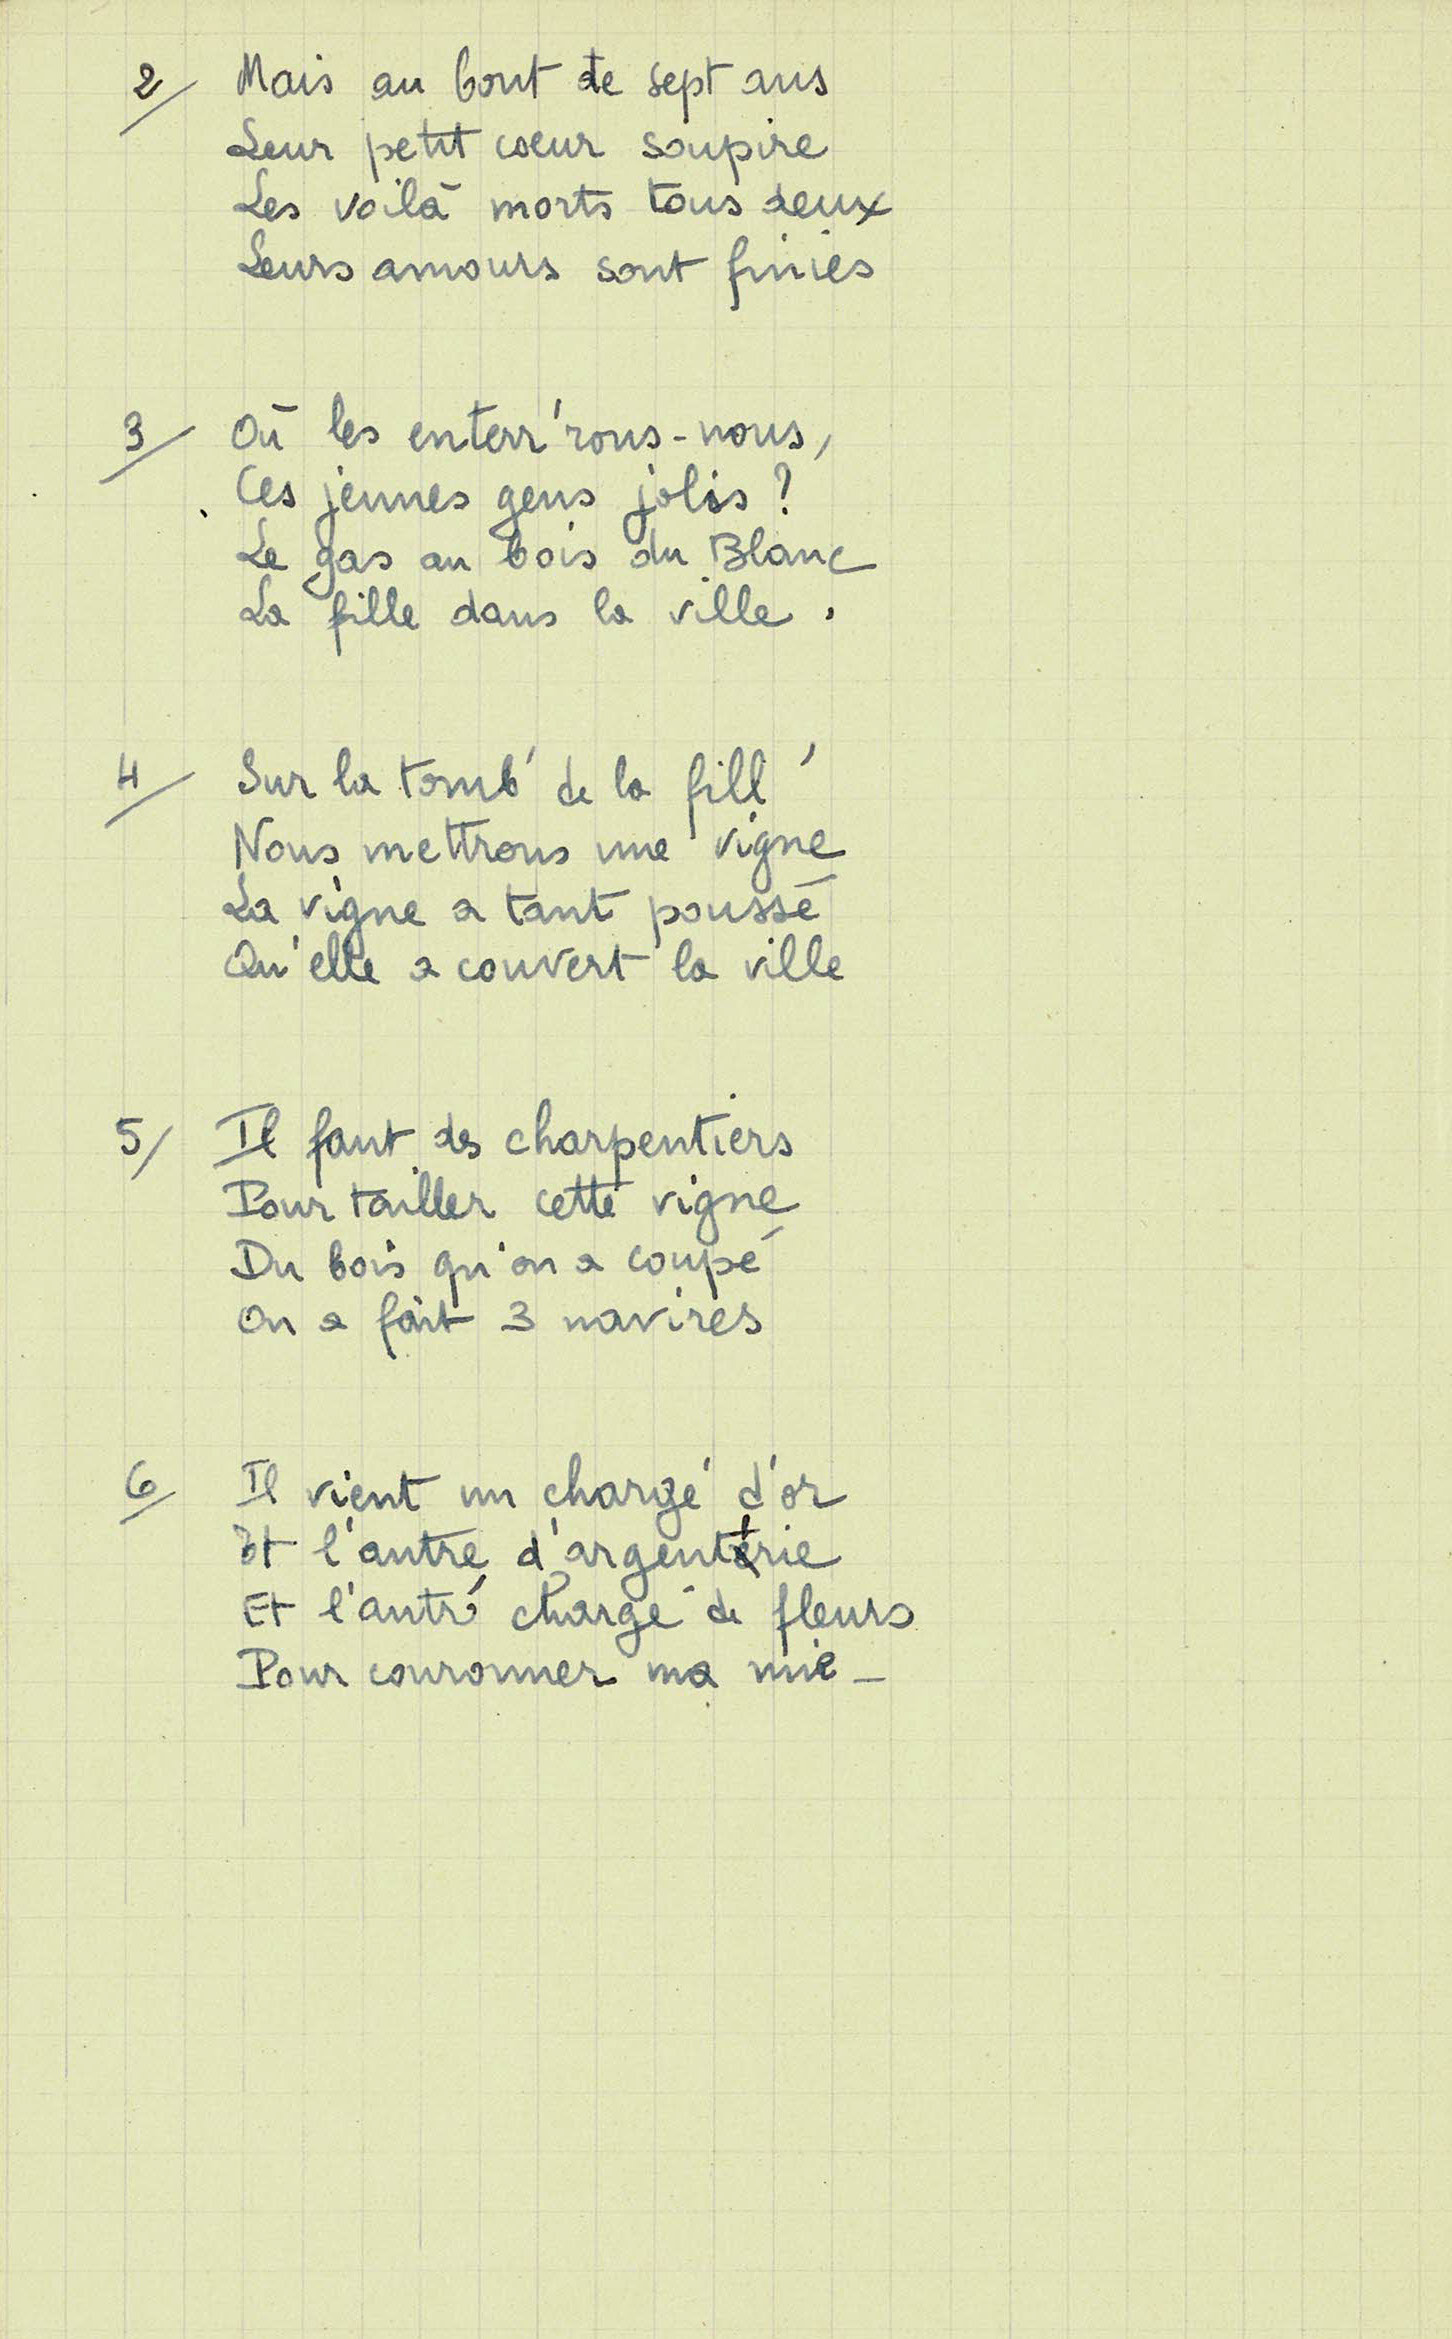 2/ Mais au bout de sept ans
Leur petit coeur soupire
Les voilà morts tous deux
Leurs amours sont finies
3/ Où les enterr'rons-nous,
Ces jeunes gens jolis ?
Le gas au bois du Blanc
La fille dans la ville.
4/ Sur la tomb' de la fill'
Nous mettrons une vigne
La vigne a tant poussé
Qu'elle a couvert la ville
5/ Il faut des charpentiers
Pour tailler cette vigne
Du bois qu'on a coupé
On a fait 3 navires
6/ Il vient un chargé d'or
Et l'autre d'argenterie
Et l'autr' chargé de fleurs
Pour couronner ma mie_